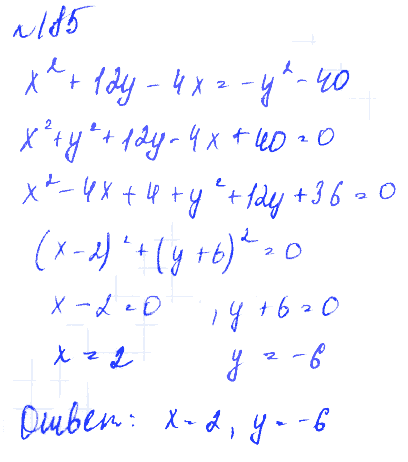 №185
x² + 12y - 4x = -y² - 40
x² + y² + 12y - 4x + 40 = 0
x² - 4x + 4 + y² + 12y + 36 = 0
(x-2)² + (y+6)² = 0
x - 2 = 0 , y + 6 = 0
x = 2 y = -6
Ответ: x = 2, y = -6